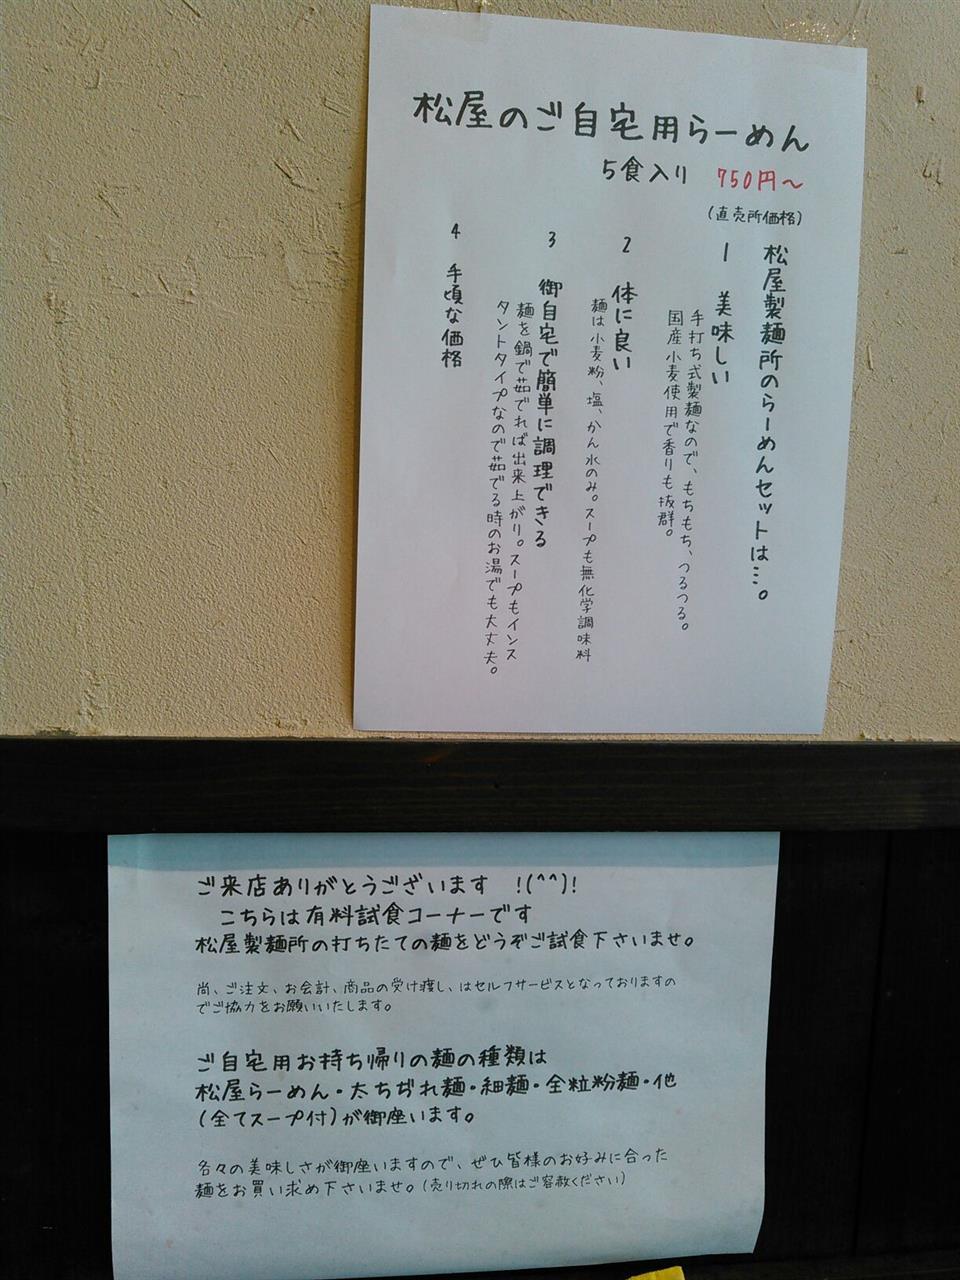 松屋のご自宅用らーめん
5食入り 750円～
(直売所価格)
松屋製麺所のらーめんセットは…。
1 美味しい
手打ち式製麺なので、もちもち、つるつる。
国産小麦使用で香りも抜群。
2 体に良い
麺は小麦粉、塩、かん水のみ。スープも無化学調味料
3 御自宅で簡単に調理できる
麺を鍋で茹でれば出来上がり。スープもインス
タントタイプなので茹でる時のお湯でも大丈夫。
4 手頃な価格
ご来店ありがとうございます !(^^)!
こちらは有料試食コーナーです
松屋製麺所の打ちたての麺をどうぞご試食下さいませ。
尚、ご注文、お会計、商品の受け渡し、はセルフサービスとなっておりますの
でご協力をお願いいたします。
ご自宅用お持ち帰りの麺の種類は
松屋らーめん・太ちぢれ麺・細麺・全粒粉麺・他
(全てスープ付)が御座います。
各々の美味しさが御座いますので、ぜひ皆様のお好みに合った
麺をお買い求め下さいませ。(売り切れの際はご容赦ください)